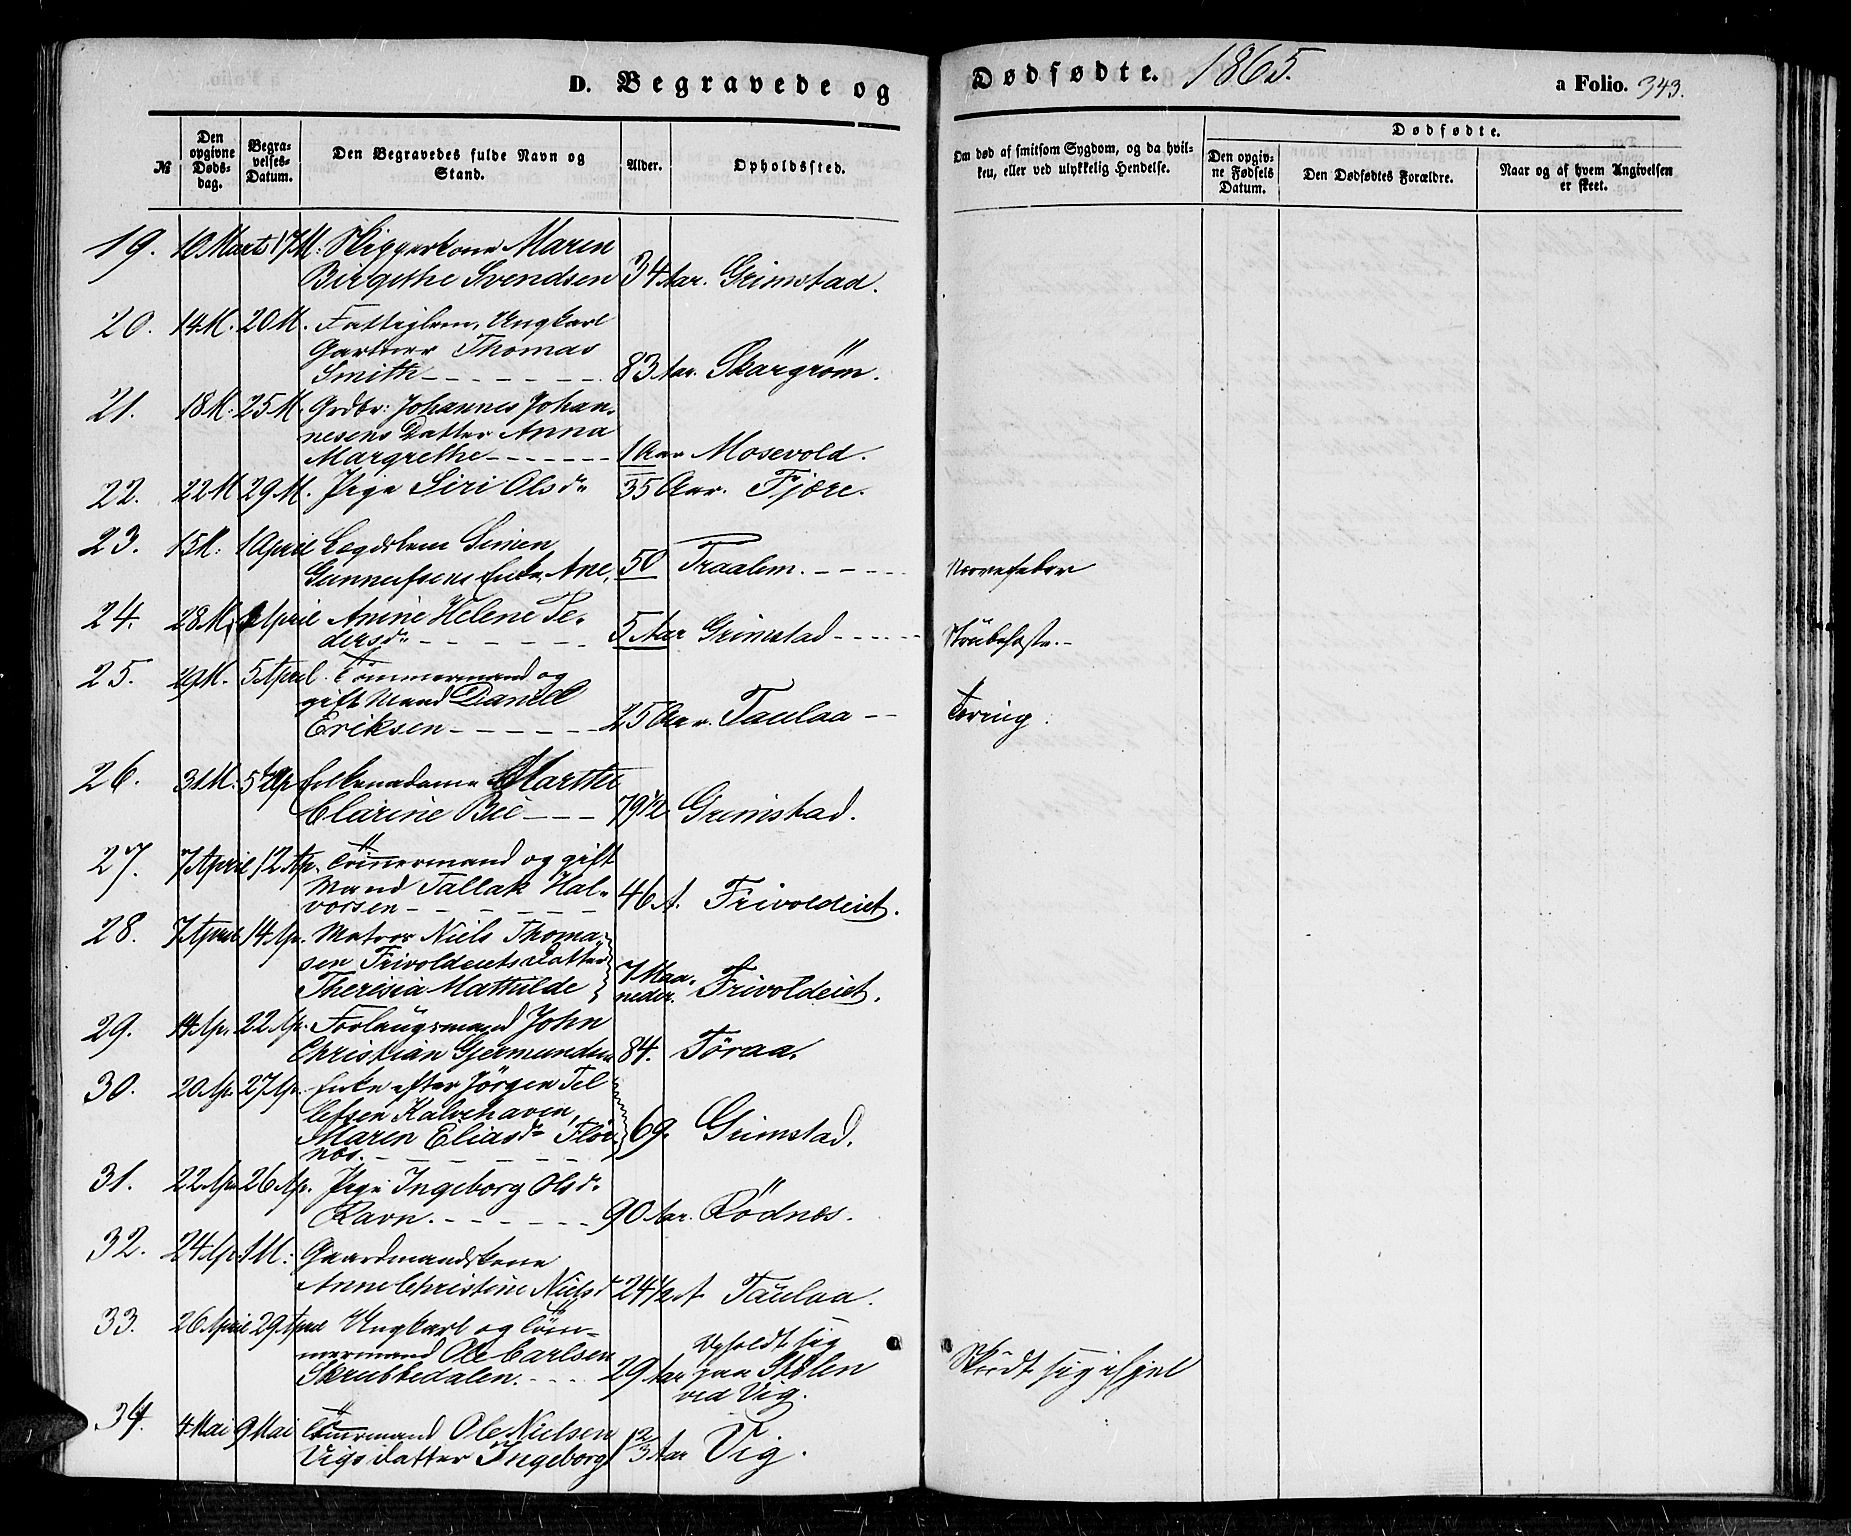 D. Begravede og Dødfødte. 1865. a Folio. 343.
№
Den opgivne Dødsdag.
Begravelses-Datum.
Den Begravedes fulde Navn og Stand.
Alder.
Opholdssted.
Om død af smitsom Sygdom, og da hvilken, eller ved ulykkelig Hendelse.
Dødfødte.
Den opgivne Fødsels Datum.
Den Dødfødtes Forældre.
Naar og af hvem Angivelsen er skeet.
19. 10 Marts 17 M: Skipperkone Maren
Birgithe Svendsen 34 Aar. Grimstad.
20. 14 M. 20 M. Fattiglem, Ungkarl
Gartner Thomas
Smith 83 Aar. Skargrøm.
21. 18 M: 25 M. Grdbr: Johannes Johan-
nesens Datter Anna
Margrethe 1 Aar Mosevold.
22. 22 M 29 M. Pige Siri Olsdr 35 Aar. Fjære.
23. 15 M: 1 April Lægdslem Simen
Gunnufsens Enke Ane, 50 Traalem. Nervefeber
24. 28 M. April Anine Helene Pe-
dersdr 5 Aar Grimstad Strubehoste.
25. 29 M. 5 April. Tömmermand og
gift Mand Daniel
Eriksen 25 Aar. Taulaa Tæring.
26. 31 M. 5 Ap Enkemadame Marthe
Clarine Bie 79 1/2 Grimstad.
27. 7 April 12 Ap. Tömmermand og gift
Mand Tallak Hal-
vorsen 46 A. Frivoldeiet.
28. 7 April 14 Ap. Matros Niels Thoma-
sen Frivoldeiets Datter
Theresia Mathilde 7 Maa-
neder. Frivoldeiet.
29. 14 Ap. 22 Ap. Forlaugsmand John
Christian Gjermundsen 84. Töraa.
30. 20 Ap. 27 Ap. Enke efter Jörgen Tel
lefsen Kalvehaven,
Maren Eliasdr Flör-
næs. 69. Grimstad.
31. 22 Ap. 26 Ap. Pige Ingeborg Olsdr
Ravn. 90 Aar. Rödnes.
32. 24 Ap. 1 M: Gaardmandskone
Anne Christine Nielsdr 24 1/2 A Taulaa.
33. 26 April 29 April Ungkarl og Töm-
mermand Ole Carlsen
Skrubbedalen. 29 Aar Opholdt sig
paa Stölen
ved Vig. Skudt sig ihjel
34. 4 Mai 9 Mai Tömmermand Ole Nielsen
Vigs datter Ingeborg 1 2/3 Aar Vig.